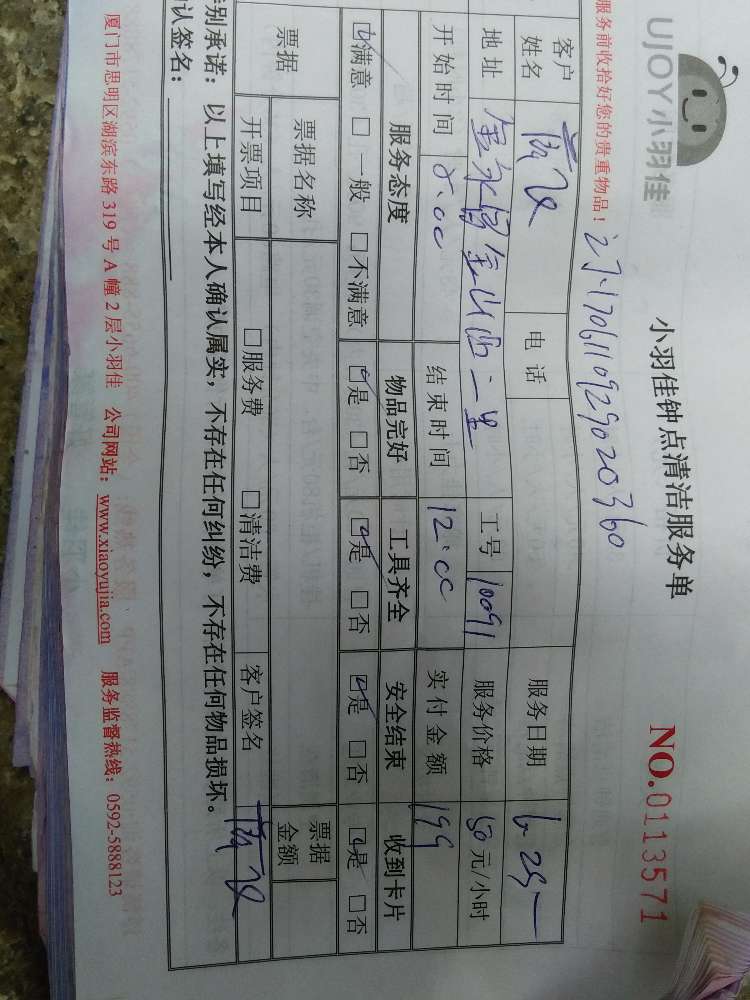 UJOY小羽佳
小羽佳钟点清洁服务单
NO.0113571
服务前收拾好您的贵重物品！
客户姓名 电话 服务日期
地址 工号 10091 服务价格 50 元/小时
开始时间 8:00 结束时间 12:00 实付金额 199
服务态度 物品完好 工具齐全 安全结束 收到卡片
□满意 □一般 □不满意 □是 □否 □是 □否 □是 □否 □是 □否
票据 票据名称 票据金额
开票项目 □服务费 □清洁费 客户签名
别承诺：以上填写经本人确认属实，不存在任何纠纷，不存在任何物品损坏。
认签名：
厦门市思明区湖滨东路 319 号 A 幢 2 层小羽佳 公司网站：www.xiaoyujia.com 服务监督热线：0592-5888123